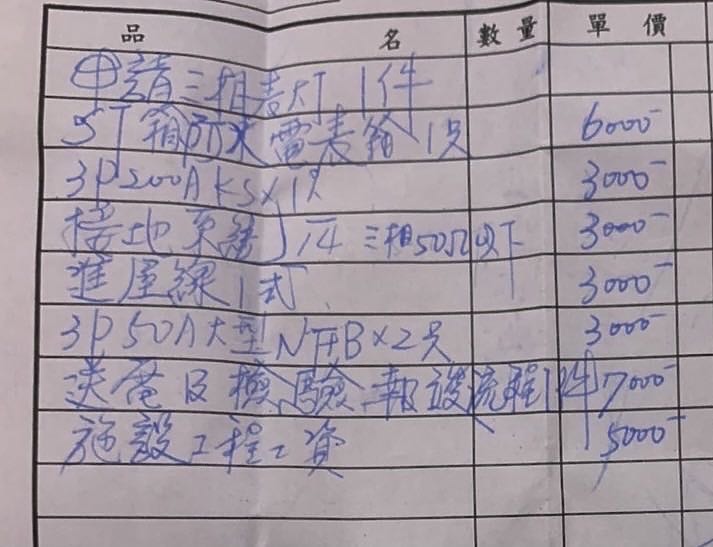 品 名 數量 單價
申請三相表灯 1件
ST箱防水電表箱 1只 6000-
3P200A KS×1只 3000-
接地系統 三相50Ω以下 3000-
進屋線 1式 3000-
3P 50A大型NFB×2只 3000-
送電及檢驗、報竣流程1件 7000-
施設工程工資 5000-